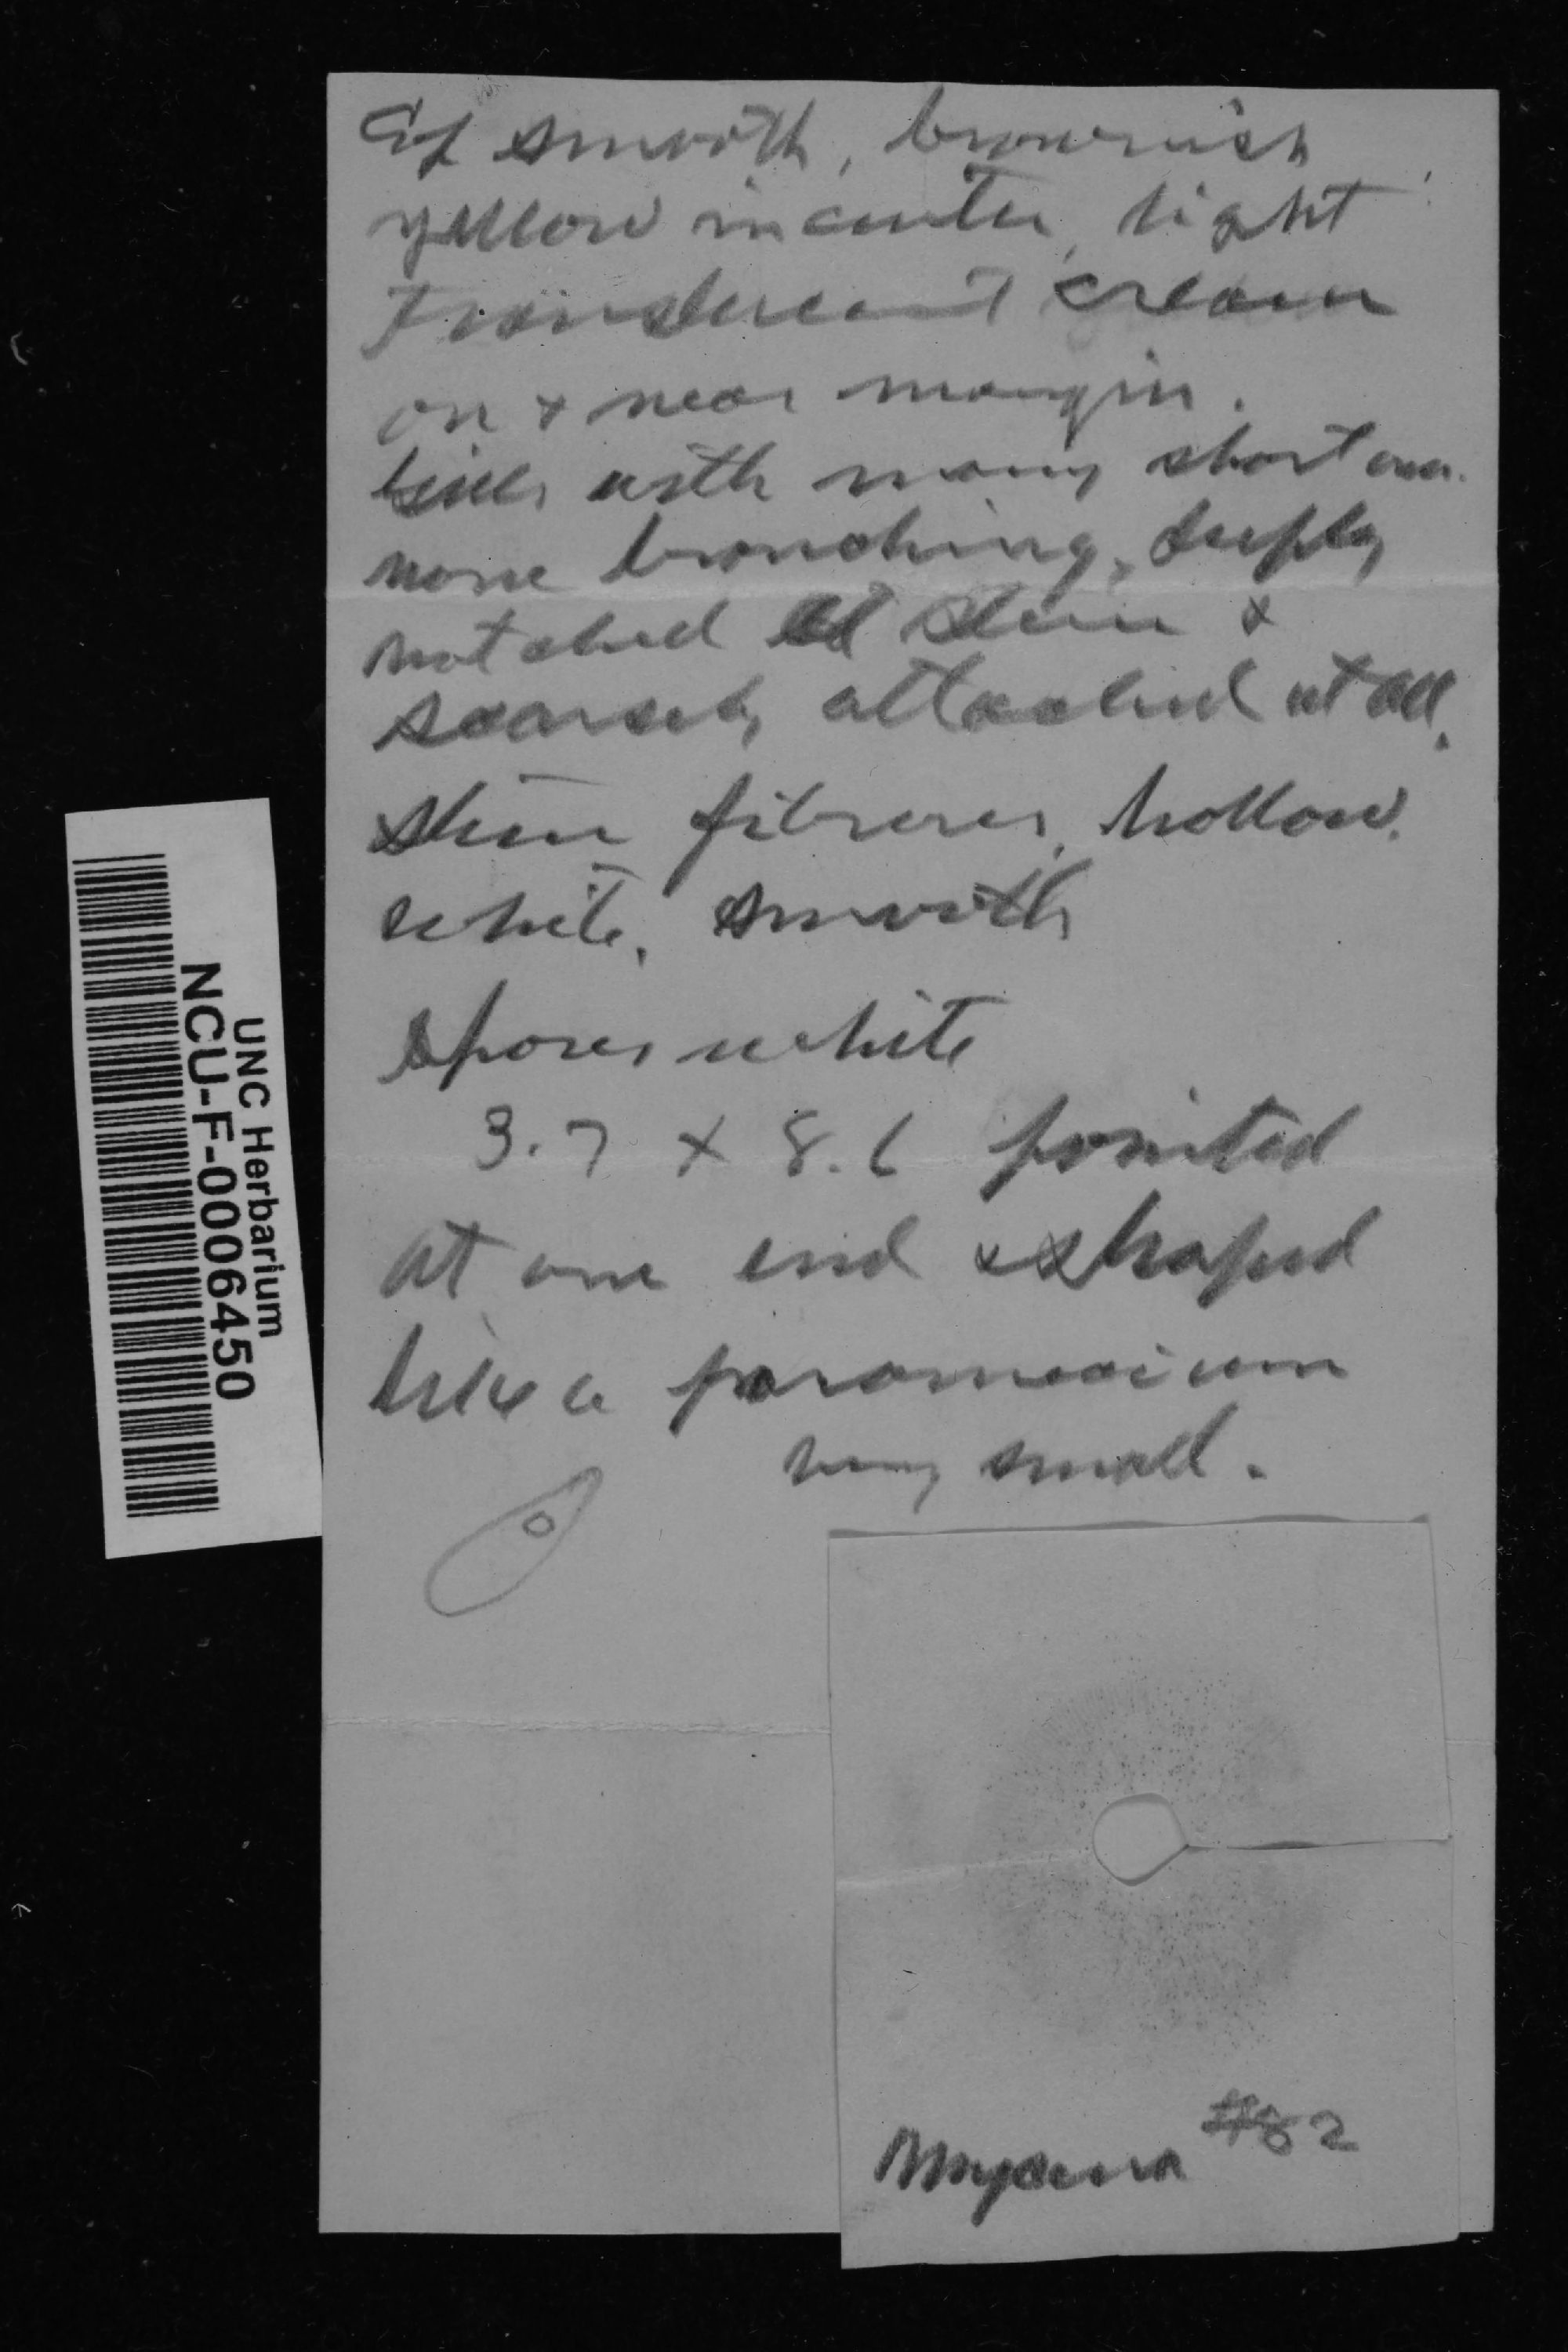 Cap smooth, brownish
yellow in center, light
translucent cream
on & near margin.
Gills with many short ones.
none branching, deeply
notched at stem &
scarcely attached at all.
Stem fibrous, hollow.
white. smooth
Spores white
3.7 x 8.6 pointed
at one end & shaped
like a paramoecium
very small.
Mycena #82
UNC Herbarium
NCU-F-0006450